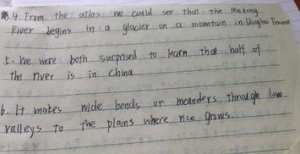 4. From the atlas we could see that the Mekong
River begins in a glacier on a mountain in Qinghai Province
5. We were both surprised to learn that half of
the river is in china
6. It makes wide bends, or meanders through low
valleys to the plains where rice grows.